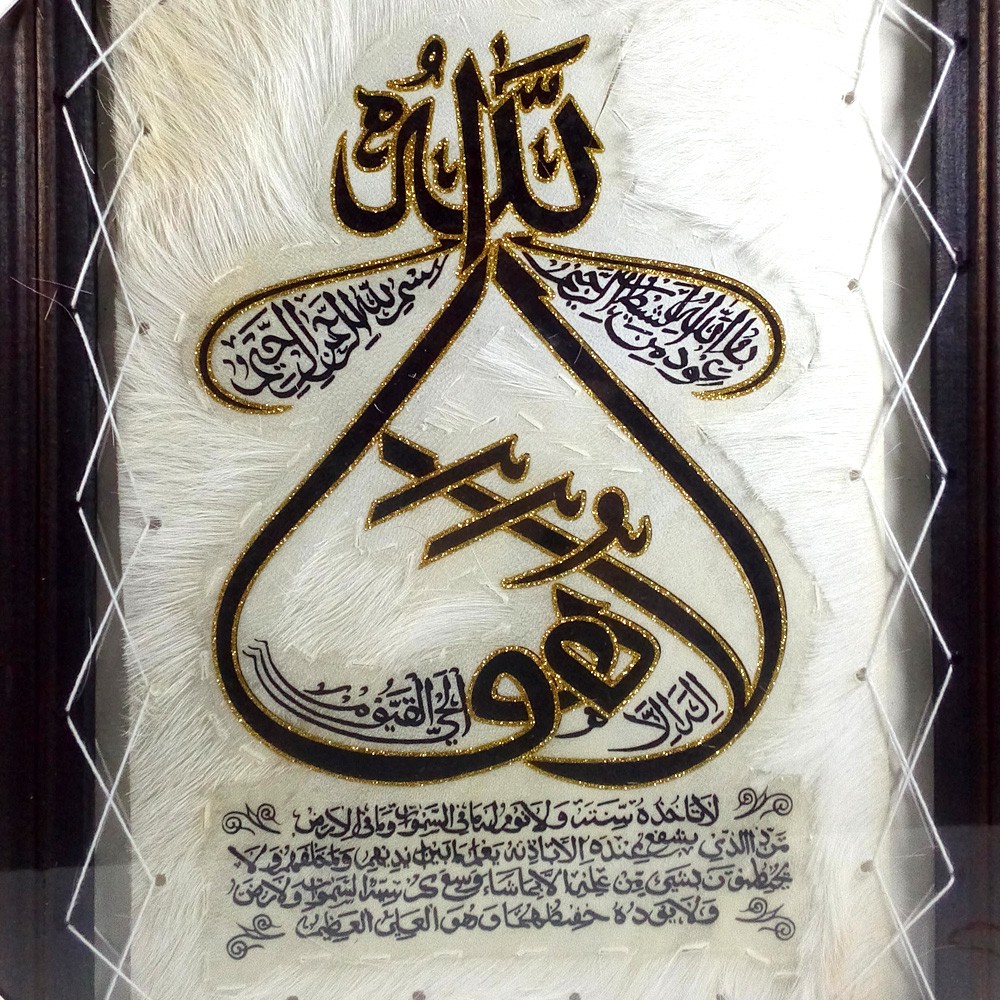 الله
اعوذ بالله من الشيطان الرجيم
بسم الله الرحمن الرحيم
هو
الحي القيوم
لا تاخذه سنة ولا نوم له ما في السموات وما في الارض
من ذا الذي يشفع عنده الا باذنه يعلم ما بين ايديهم وما خلفهم ولا
يحيطون بشيء من علمه الا بما شاء وسع كرسيه السموات والارض
ولا يوده حفظهما وهو العلي العظيم